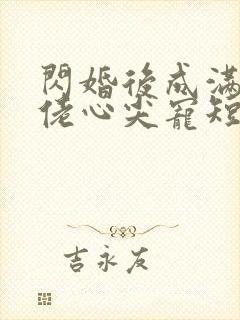 閃婚後成滿
佬心尖寵短
吉永友